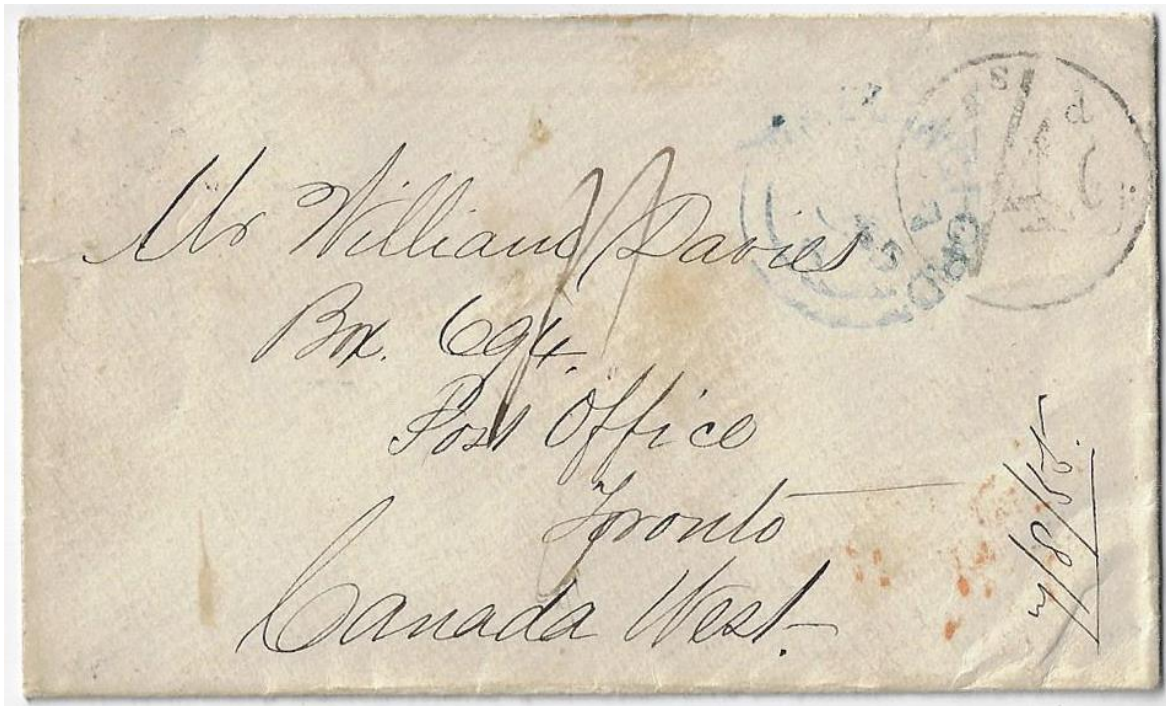 Mr William Davies
Box. 694.
Post Office
Toronto
Canada West.
s d